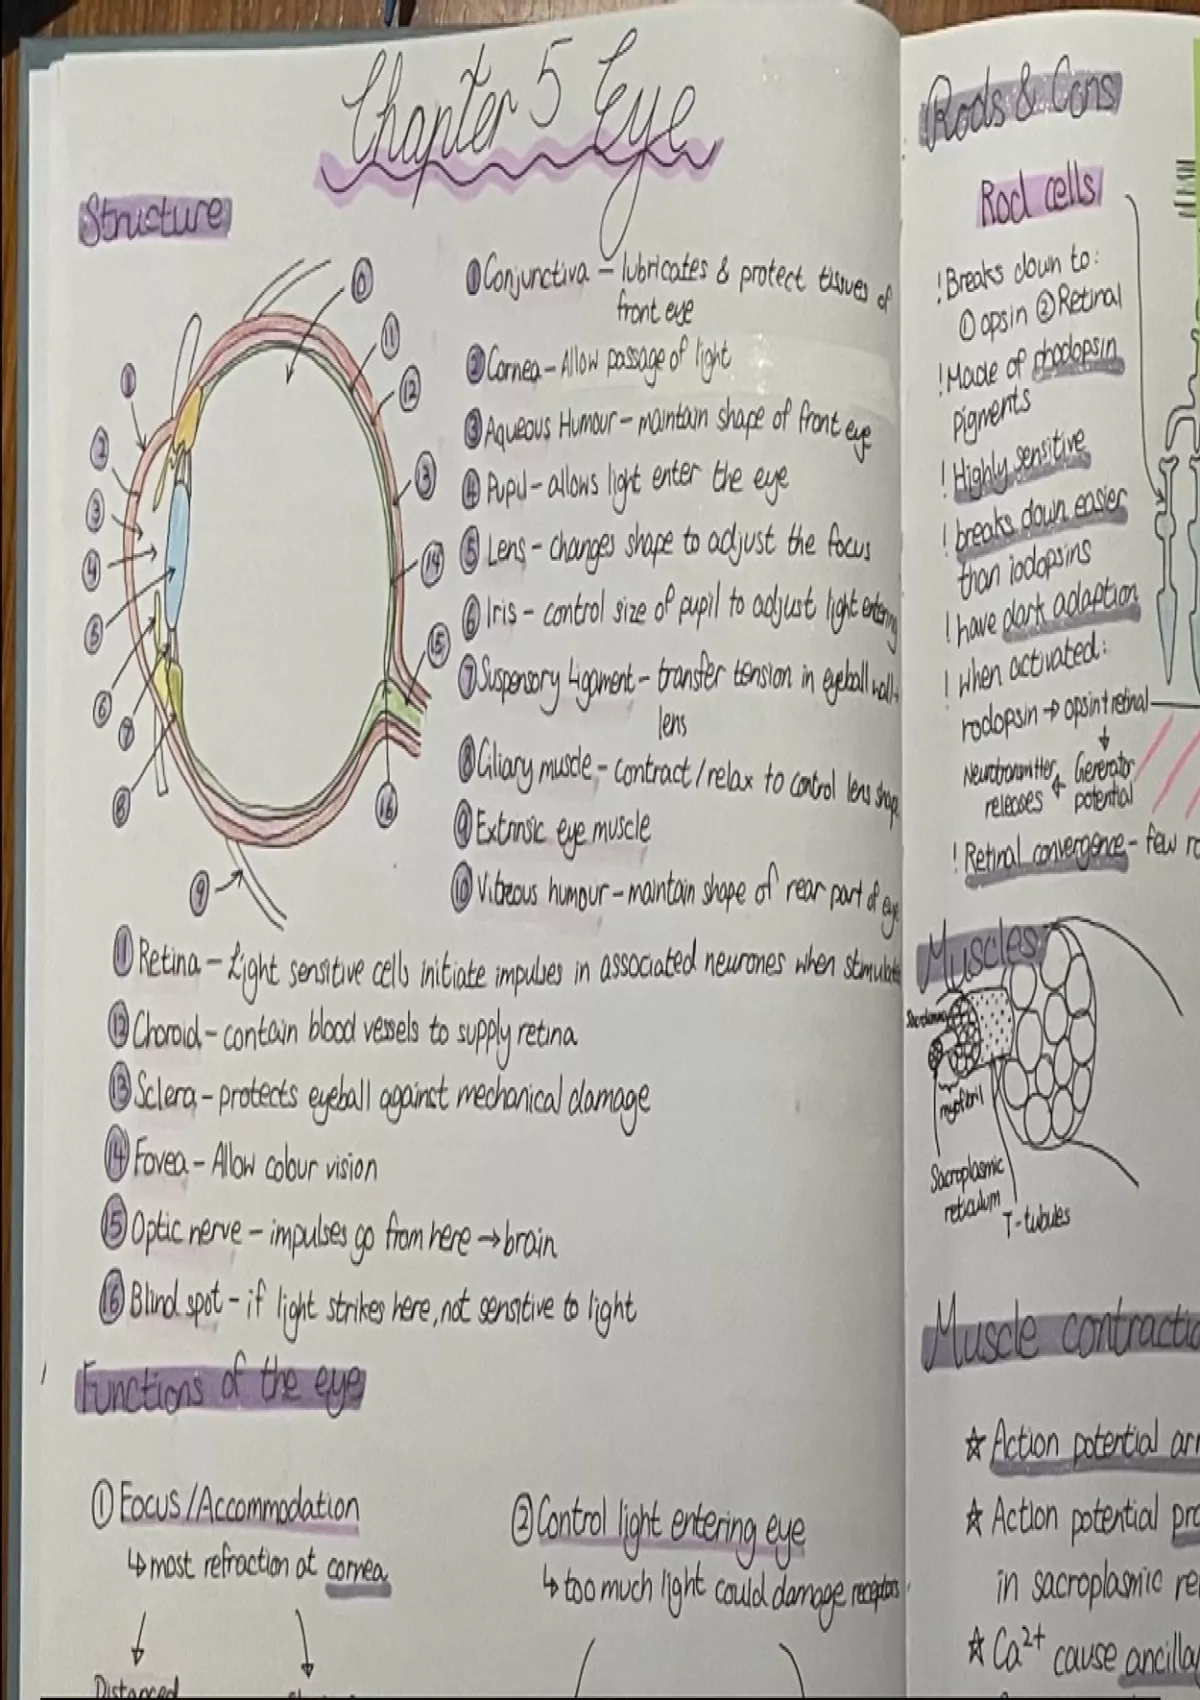 Chapter 5 Eye
Structure
① Conjunctiva – lubricates & protect tissues of
front eye
② Cornea – Allow passage of light
③ Aqueous Humour – maintain shape of front eye
④ Pupil – allows light enter the eye
⑤ Lens – changes shape to adjust the focus
⑥ Iris – control size of pupil to adjust light entering
⑦ Suspensory Ligament – transfer tension in eyeball wall→
lens
⑧ Ciliary muscle – contract/relax to control lens shape
⑨ Extrinsic eye muscle
⑩ Vitreous humour – maintain shape of rear part of eye
⑪ Retina – Light sensitive cells initiate impulses in associated neurones when
⑫ Choroid – contain blood vessels to supply retina
⑬ Sclera – protects eyeball against mechanical damage
⑭ Fovea – Allow colour vision
⑮ Optic nerve – impulses go from here → brain
⑯ Blind spot – if light strikes here, not sensitive to light
1
2
3
4
5
6
7
8
9
11
12
13
14
15
16
Functions of the eye
① Focus/Accommodation
↳ most refraction at cornea
Distanced
② Control light entering eye
↳ too much light could damage receptors
Rods & Cons
Rod cells
! Breaks down to:
① opsin ② Retinal
! Made of rhodopsin
pigments
! Highly sensitive
! breaks down easier
than iodopsins
! have dark adaption
! when activated:
rodopsin → opsin + retinal
Generator
potential
Neurotransmitter
releases
! Retinal convergence – few
Muscles
myofibril
Sacroplasmic
reticulum
T-tubules
Muscle contractio
☆ Action potential arr
☆ Action potential pro
in sacroplasmic re
☆ Ca²⁺ cause ancilla